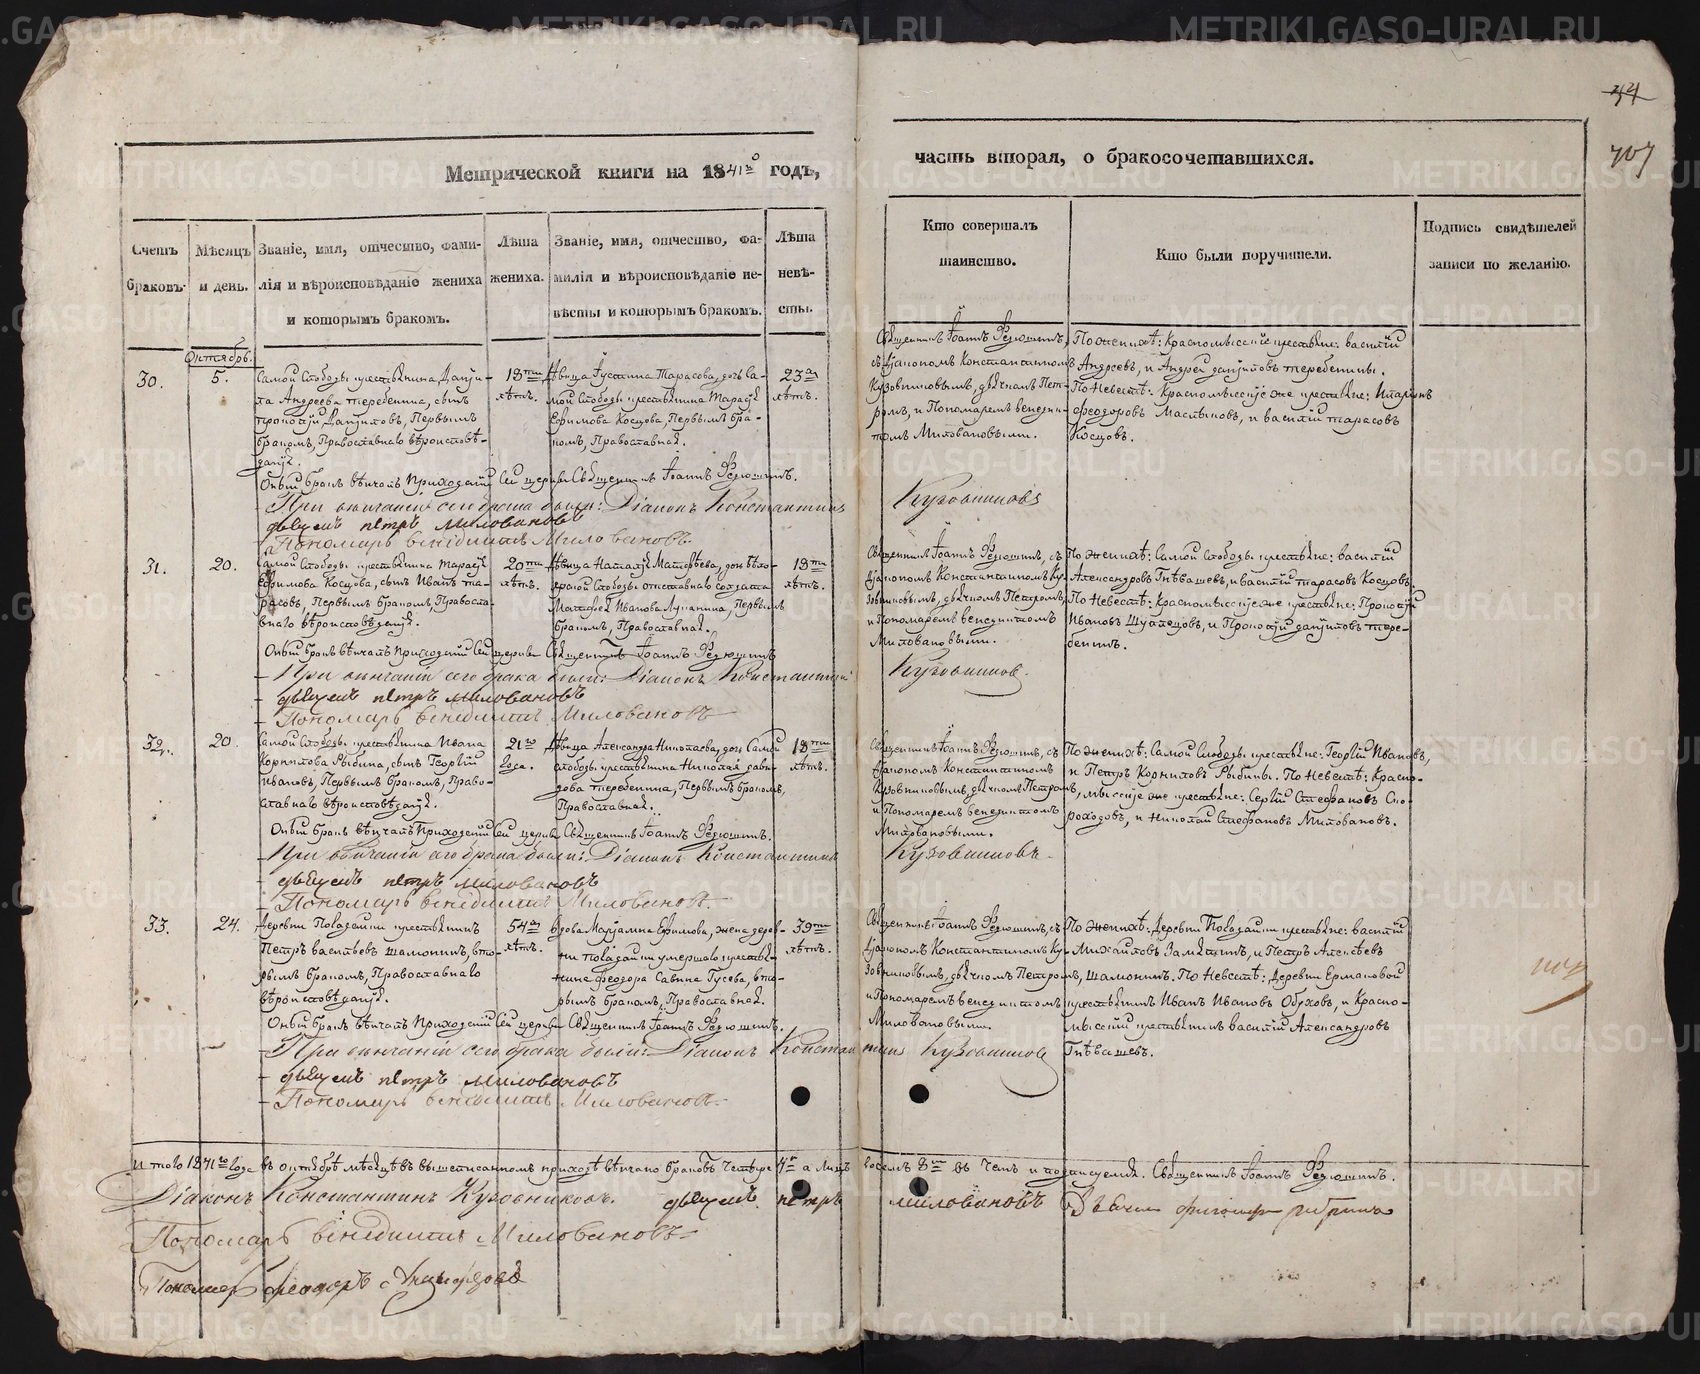 34
707
Метрической книги на 1841го годъ,
часть вторая, о бракосочетавшихся.
Счетъ браковъ.
Мѣсяцъ и день.
Званіе, имя, отчество, фами-
лія и вѣроисповѣданіе жениха
и которымъ бракомъ.
Лѣта
жениха.
Званіе, имя, отчество, фа-
милія и вѣроисповѣданіе не-
вѣсты и которымъ бракомъ.
Лѣта
невѣ-
сты.
Кто совершалъ
таинство.
Кто были поручители.
Подпись свидѣтелей
записи по желанію.
Октябрь.
30.
5.
Самой Слободы крестьянина Дани-
ла Андреева Теребенина, сынъ
Прокопій Даниловъ, Первымъ
бракомъ, Православнаго вѣроисповѣ-
данія.
18ти
лѣтъ.
Дѣвица Іустина Тарасова, дочь Са-
мой Слободы крестьянина Тарасія
Ефимова Косцова, Первымъ бра-
комъ, Православная.
23хъ
лѣтъ.
Священникъ Іоаннъ Ѳедюшинъ,
съ Діакономъ Константиномъ
Кузовниковымъ, дьячкомъ Пет-
ромъ, и Пономаремъ Венедик-
томъ Миловановыми.
По женихѣ: Красномысскіе крестьяне: Василій
Андреевъ, и Андрей Даниловъ Теребенины.
По Невестѣ: Красномысскіе же крестьяне: Иларіонъ
Феодоровъ Маслыковъ, и Василій Тарасовъ
Косцовъ.
Оный бракъ вѣнчалъ Приходскій сей церкви Священникъ Іоаннъ Ѳедюшинъ.
При вѣнчаніи сего брака были: Діаконъ Константинъ Кузовниковъ
дьячекъ Петръ Миловановъ
Пономарь Венедиктъ Миловановъ.
31.
20.
Самой Слободы крестьянина Тарасія
Ефимова Косцова, сынъ Иванъ Та-
расовъ, Первымъ бракомъ, Правосла-
внаго вѣроисповѣданія.
20ти
лѣтъ.
Дѣвица Наталія Матфѣева, дочь
Слободы отставнаго солдата
Матфея Иванова Лупанина, Первымъ
бракомъ, Православная.
18ти
лѣтъ.
Священникъ Іоаннъ Ѳедюшинъ, съ
Діакономъ Константиномъ Ку-
зовниковымъ, дьячкомъ Петромъ,
и Пономаремъ Венедиктомъ
Миловановыми.
По женихѣ: Самой Слободы крестьяне: Василій
Александровъ Гнѣвашевъ, и Василій Тарасовъ Косцовъ.
По Невестѣ: Красномысскіе же крестьяне: Прокопій
Ивановъ Шуплецовъ, и Прокопій Даниловъ Тере-
бенинъ.
Оный бракъ вѣнчалъ Приходскій сей церкви Священникъ Іоаннъ Ѳедюшинъ
При вѣнчаніи сего брака были: Діаконъ Константинъ Кузовниковъ.
дьячекъ Петръ Миловановъ
Пономарь Венедиктъ Миловановъ
32.
20.
Самой Слободы крестьянина Ивана
Корнилова Рыбина, сынъ Георгій
Ивановъ, Первымъ бракомъ, Право-
славнаго вѣроисповѣданія.
21го
года.
Дѣвица Александра Николаева, дочь Самой
Слободы крестьянина Николая Давы-
дова Теребенина, Первымъ бракомъ,
Православная.
18ти
лѣтъ.
Священникъ Іоаннъ Ѳедюшинъ, съ
Діакономъ Константиномъ
Кузовниковымъ, дьячкомъ Петромъ,
и Пономаремъ Венедиктомъ
Миловановыми.
По женихѣ: Самой Слободы крестьяне: Георгій Ивановъ,
и Петръ Корниловъ Рыбины. По Невестѣ: Красно-
мысскіе же крестьяне: Сергій Стефановъ Ско-
роходовъ, и Николай Стефановъ Миловановъ.
Оный бракъ вѣнчалъ Приходскій сей церкви Священникъ Іоаннъ Ѳедюшинъ.
При вѣнчаніи сего брака были: Діаконъ Константинъ Кузовниковъ
дьячекъ Петръ Миловановъ
Пономарь Венедиктъ Миловановъ
33.
24.
Деревни крестьянинъ
Петръ Васильевъ Шалюгинъ, вто-
рымъ бракомъ, Православнаго
вѣроисповѣданія.
54хъ
лѣтъ.
Вдова Маріамна Ефимова, жена дерев-
ни умершаго крестья-
нина Феодора Савина Гусева, вто-
рымъ бракомъ, Православная.
39ти
лѣтъ.
Священникъ Іоаннъ Ѳедюшинъ, съ
Діакономъ Константиномъ Ку-
зовниковымъ, дьячкомъ Петромъ,
и Пономаремъ Венедиктомъ
Миловановыми.
По женихѣ: Деревни крестьяне: Василій
Михайловъ и Петръ Алексѣевъ
По Невестѣ: Деревни Ермаковой
крестьянинъ Иванъ Ивановъ Обуховъ, и Красно-
мысскій крестьянинъ Василій Александровъ
Гнѣвашевъ.
Оный бракъ вѣнчалъ Приходскій сей церкви Священникъ Іоаннъ Ѳедюшинъ.
При вѣнчаніи сего брака были: Діаконъ Константинъ Кузовниковъ
дьячекъ Петръ Миловановъ
Пономарь Венедиктъ Миловановъ.
Итого 1841го года въ октябрѣ мѣсяцѣ въ вышеписанномъ приходѣ вѣнчано браковъ четыре 4ре а лицъ восемь 8мь въ чемъ и подписуемся. Священникъ Іоаннъ Ѳедюшинъ.
Діаконъ Константинъ Кузовниковъ. дьячекъ Петръ Миловановъ
Пономарь Венедиктъ Миловановъ
Пономарь Феодоръ
METRIKI.GASO-URAL.RU